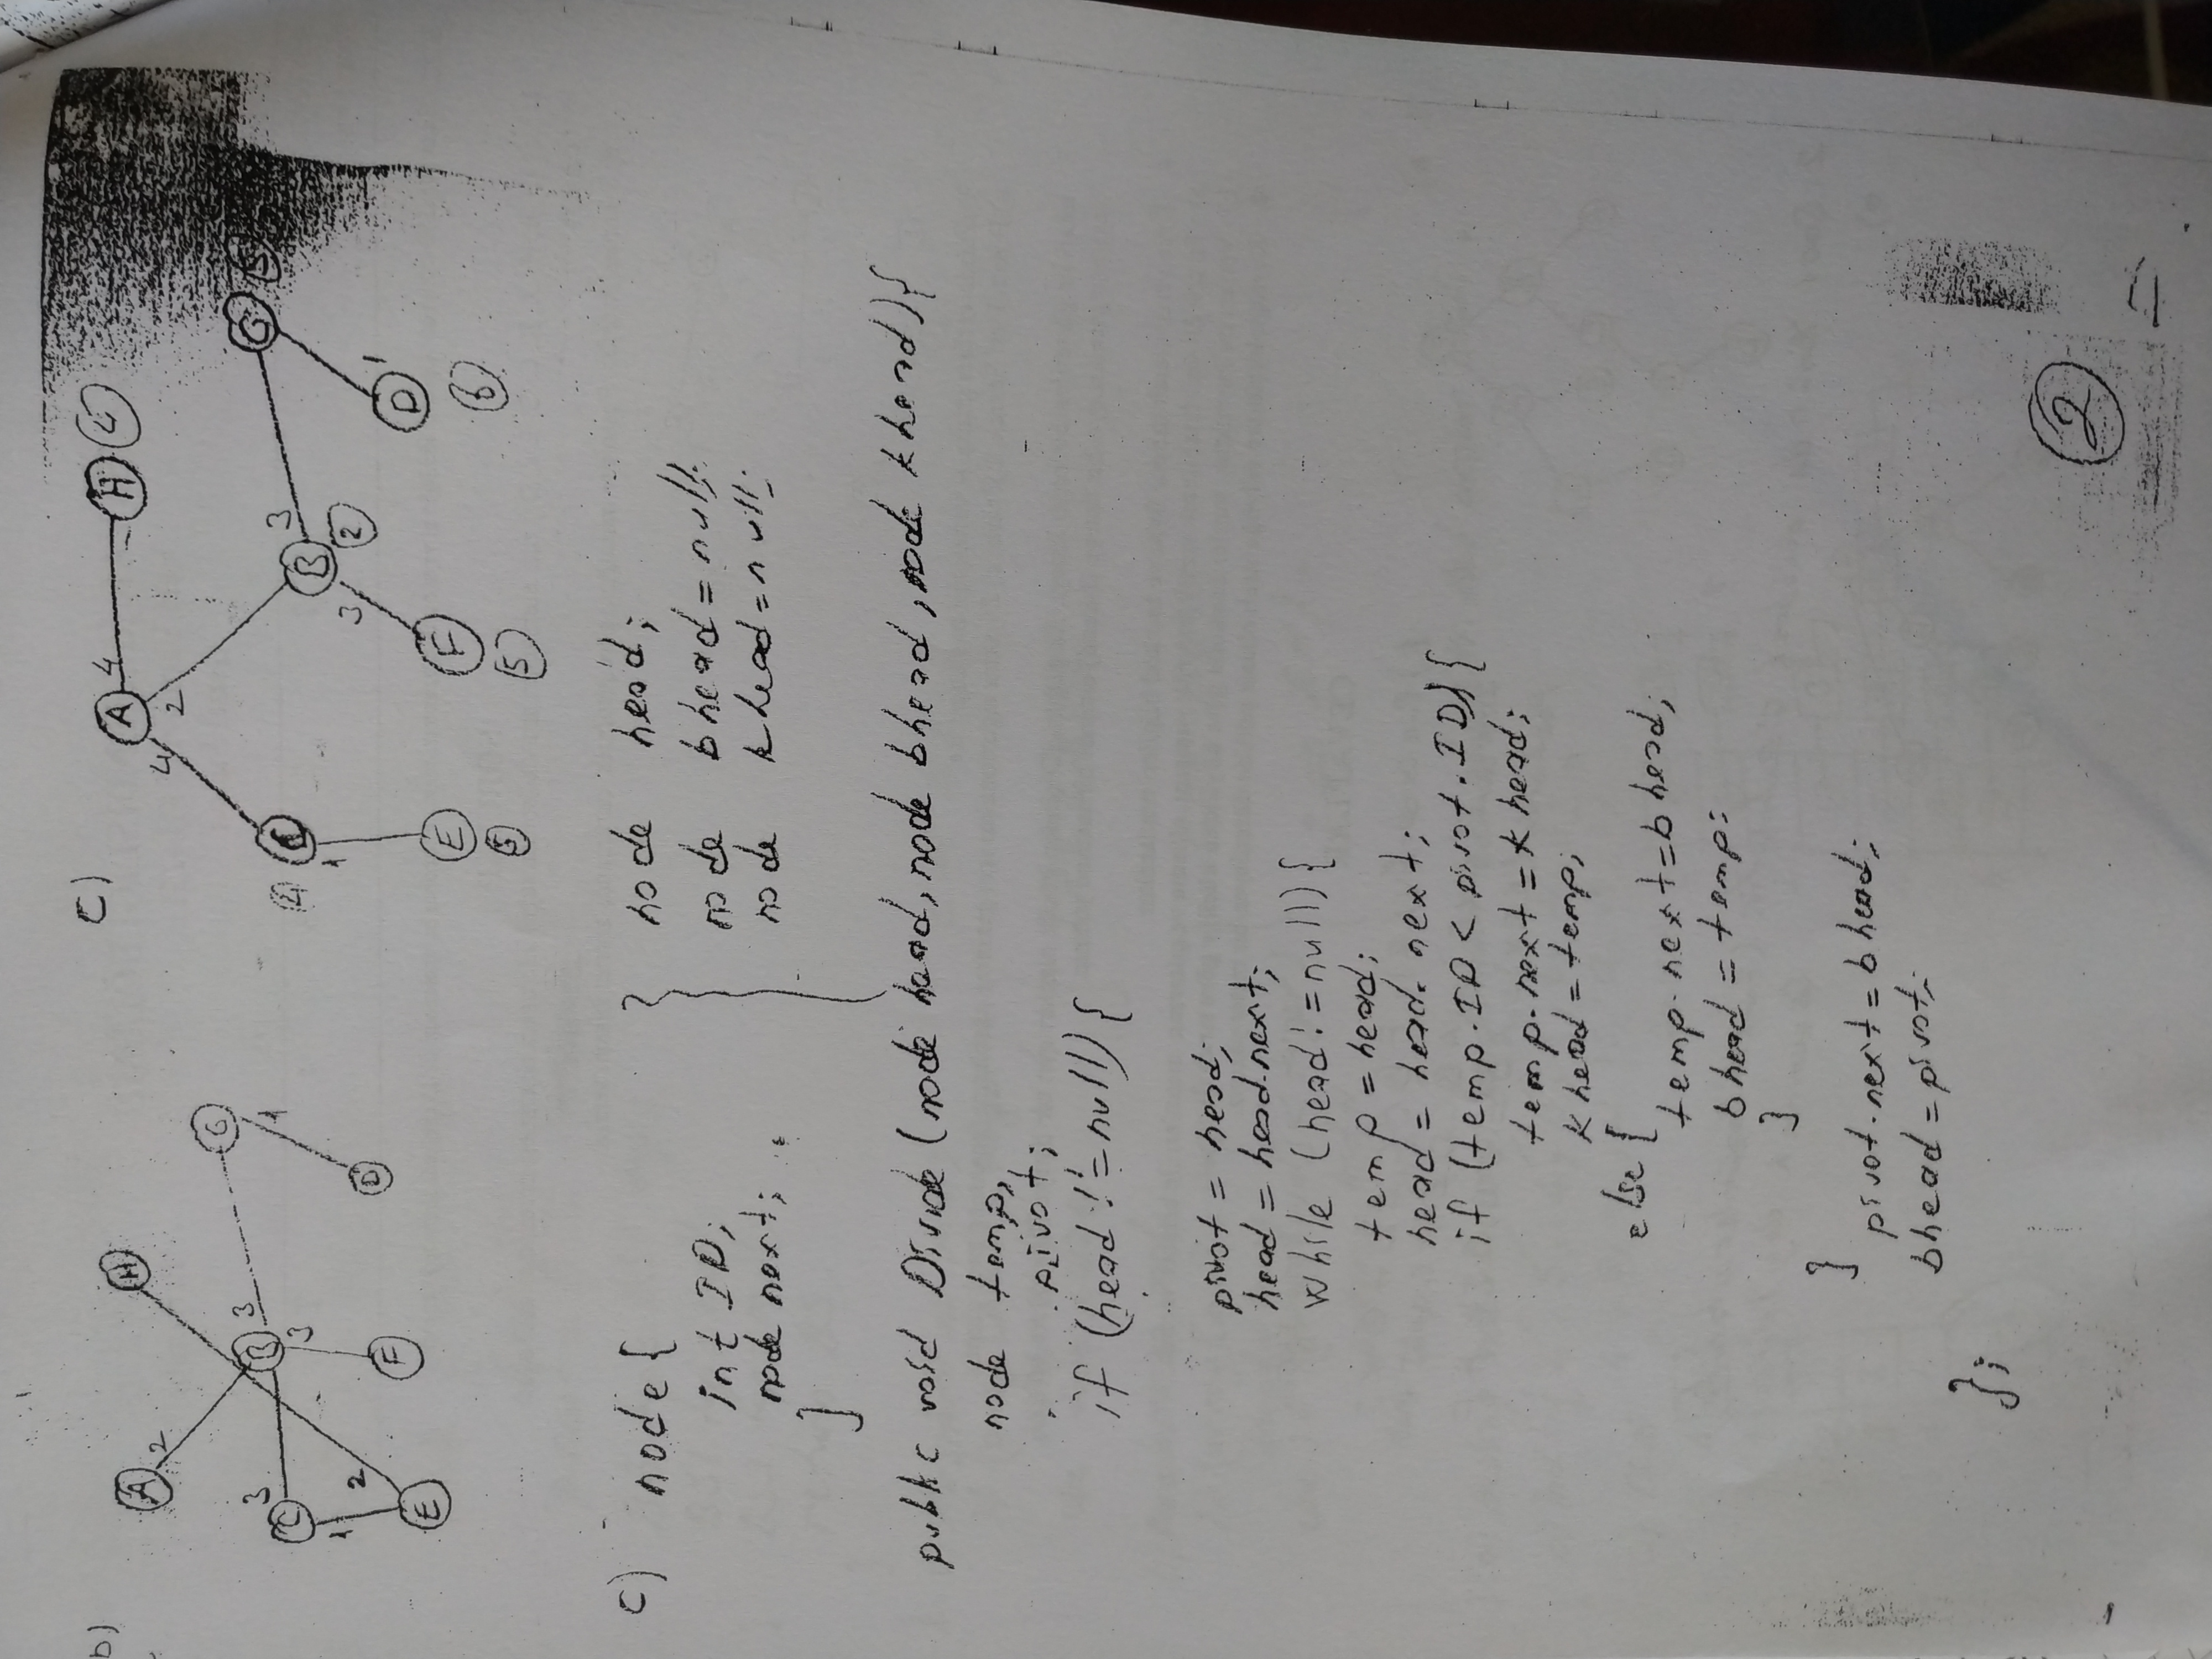 b)
A
2
H
C
3
1
E
2
B
3
3
F
G
1
D
c)
A
4
4
2
H
4
C
4
1
E
5
B
2
3
3
F
5
G
5
1
D
6
c) node{
int ID;
node next;
}
node head;
node bhead = null;
node khead = null;
public void Divide (node head, node bhead, node khead){
node temp,
pivot;
if (head != null){
pivot = head;
head = head.next;
while (head != null){
temp = head;
head = head.next;
if (temp.ID < pivot.ID){
temp.next = khead;
khead = temp;
else{
temp.next = bhead;
bhead = temp;
}
}
pivot.next = bhead;
bhead = pivot;
};
2